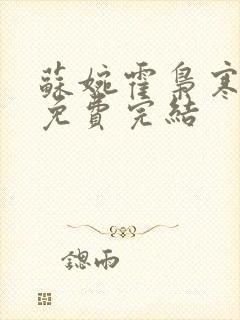 蘇婉霍梟寒
免費完結
鍶雨